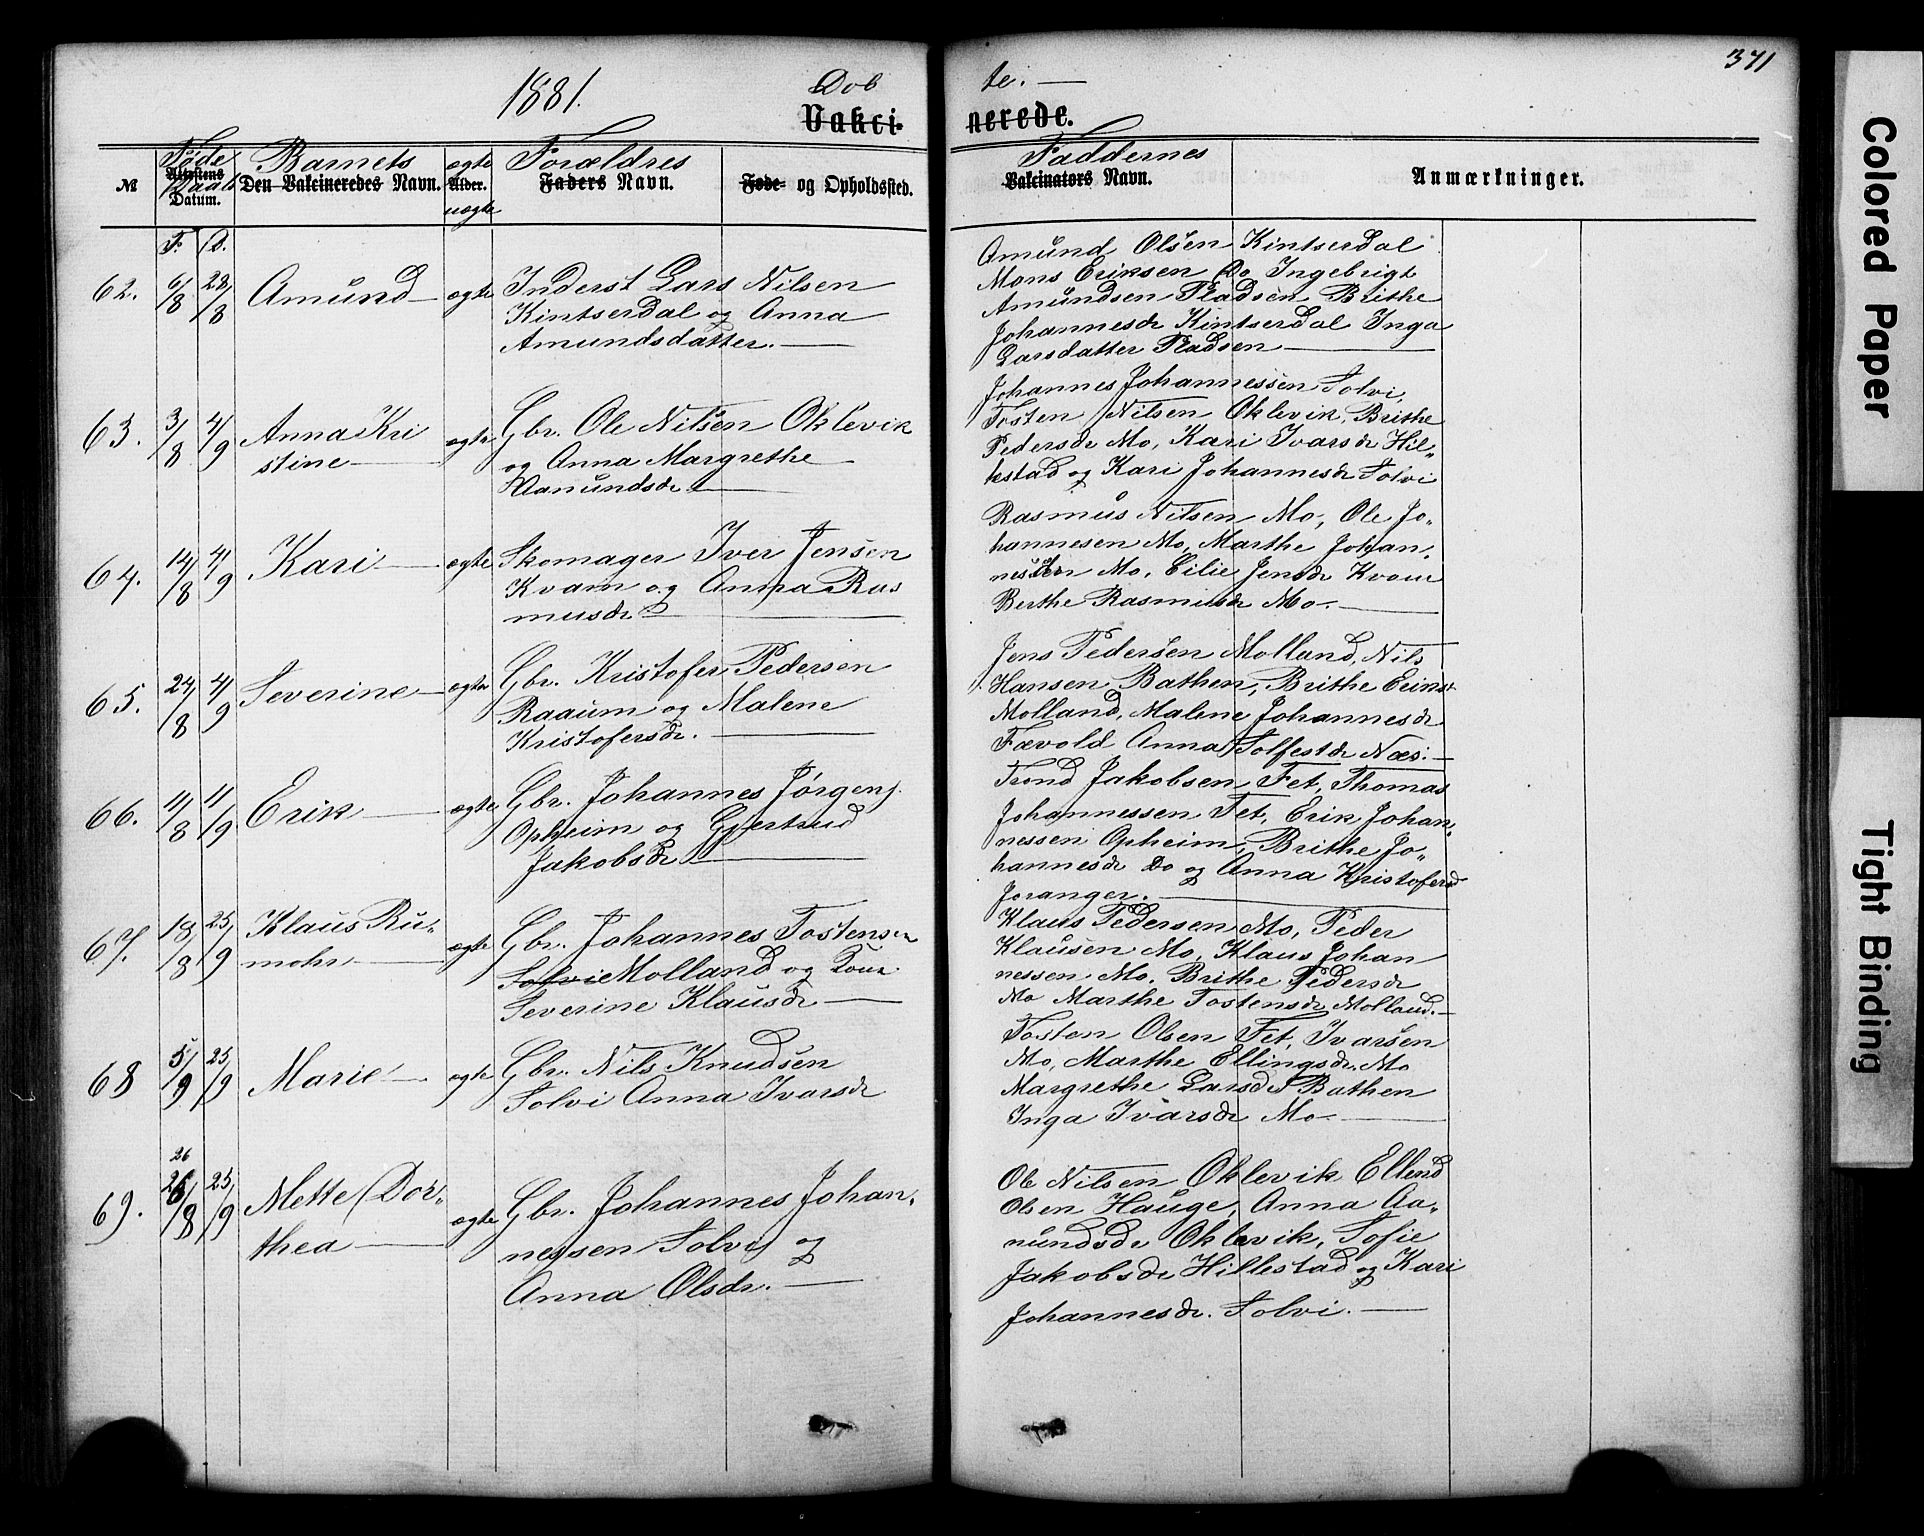 371
1881.
Døb
te.
Vakci-
nerede.
Føde
Daab
№
Attestens
Datum.
Barnets
Den Vakcineredes Navn.
ægte
Alder.
uægte
Forældres
Faders Navn.
Føde- og Opholdssted.
Faddernes
Vakcinators Navn.
Anmærkninger.
F. D.
62. 6/8 28/8 Amund ægte Inderst Lars Nilsen
Kintserdal og Anna
Amundsdatter.
Amund Olsen Kintserdal
Mons Eriksen Do Ingebrigt
Amundsen Pladsen Brithe
Johannesdr Kintserdal Inga
Larsdatter Pladsen
63. 3/8 4/9 Anna Kri
stine
ægte Gbr. Ole Nilsen Oklevik
og Anna Margrethe
Aamundsdr
Johannes Johannessen Solvi,
Tosten Nilsen Oklevik, Brithe
Pedersdr Mo, Kari Ivarsdr Hil-
lestad og Kari Johannesdr Solvi
64. 14/8 4/9 Kari ægte Skomager Iver Jensen
Kvam og Anna Ras
musdr
Rasmus Nilsen Mo, Ole Jo-
hannesen Mo, Marthe Johan-
Mo, Cilie Jensdr Kvam
Berthe Rasmusdr Mo.
65. 24/8 4/9 Severine ægte Gbr. Kristofer Pedersen
Raaum og Malene
Kristofersdr.
Jens Pedersen Molland, Nils
Hansen Bathen, Brithe
Molland, Malene Johannesdr
Fævold Anna Solfestdr Næs.
66. 11/8 11/9 Erik ægte Gbr. Johannes Jørgens.
Opheim og Gjertrud
Jakobsdr
Trond Jakobsen Fet, Thomas
Johannessen Fet, Erik Johan-
nessen Opheim, Brithe Jo-
hannesdr Do og Anna Kristofersd
Joranger.
67. 18/8 25/9 Klaus Ru-
mohr
ægte Gbr. Johannes Tostensen
Solvi Molland og
Severine Klausdr
Klaus Pedersen Mo, Peder
Klausen Mo, Klaus Johan
nessen Mo, Brithe Pedersdr
Mo Marthe Tostensdr Molland.
68 5/9 25/9 Marie ægte Gbr. Nils Knudsen
Solvi Anna Ivarsdr
Tosten Olsen Fet, Ivarsen
Mo, Marthe Ellingsdr. Mo
Margrethe Larsdr Bathen
Inga Ivarsdr Mo
26
69. 26/8 25/9 Mette Dor-
thea
ægte Gbr. Johannes Johan-
nessen Solvi og
Anna Olsdr.
Ole Nilsen Oklevik Ellend
Olsen Hauge, Anna Aa-
mundsdr Oklevik, Sofie
Jakobsdr Hillestad og Kari
Johannesdr. Solvi.
Colored Paper
Tight Binding